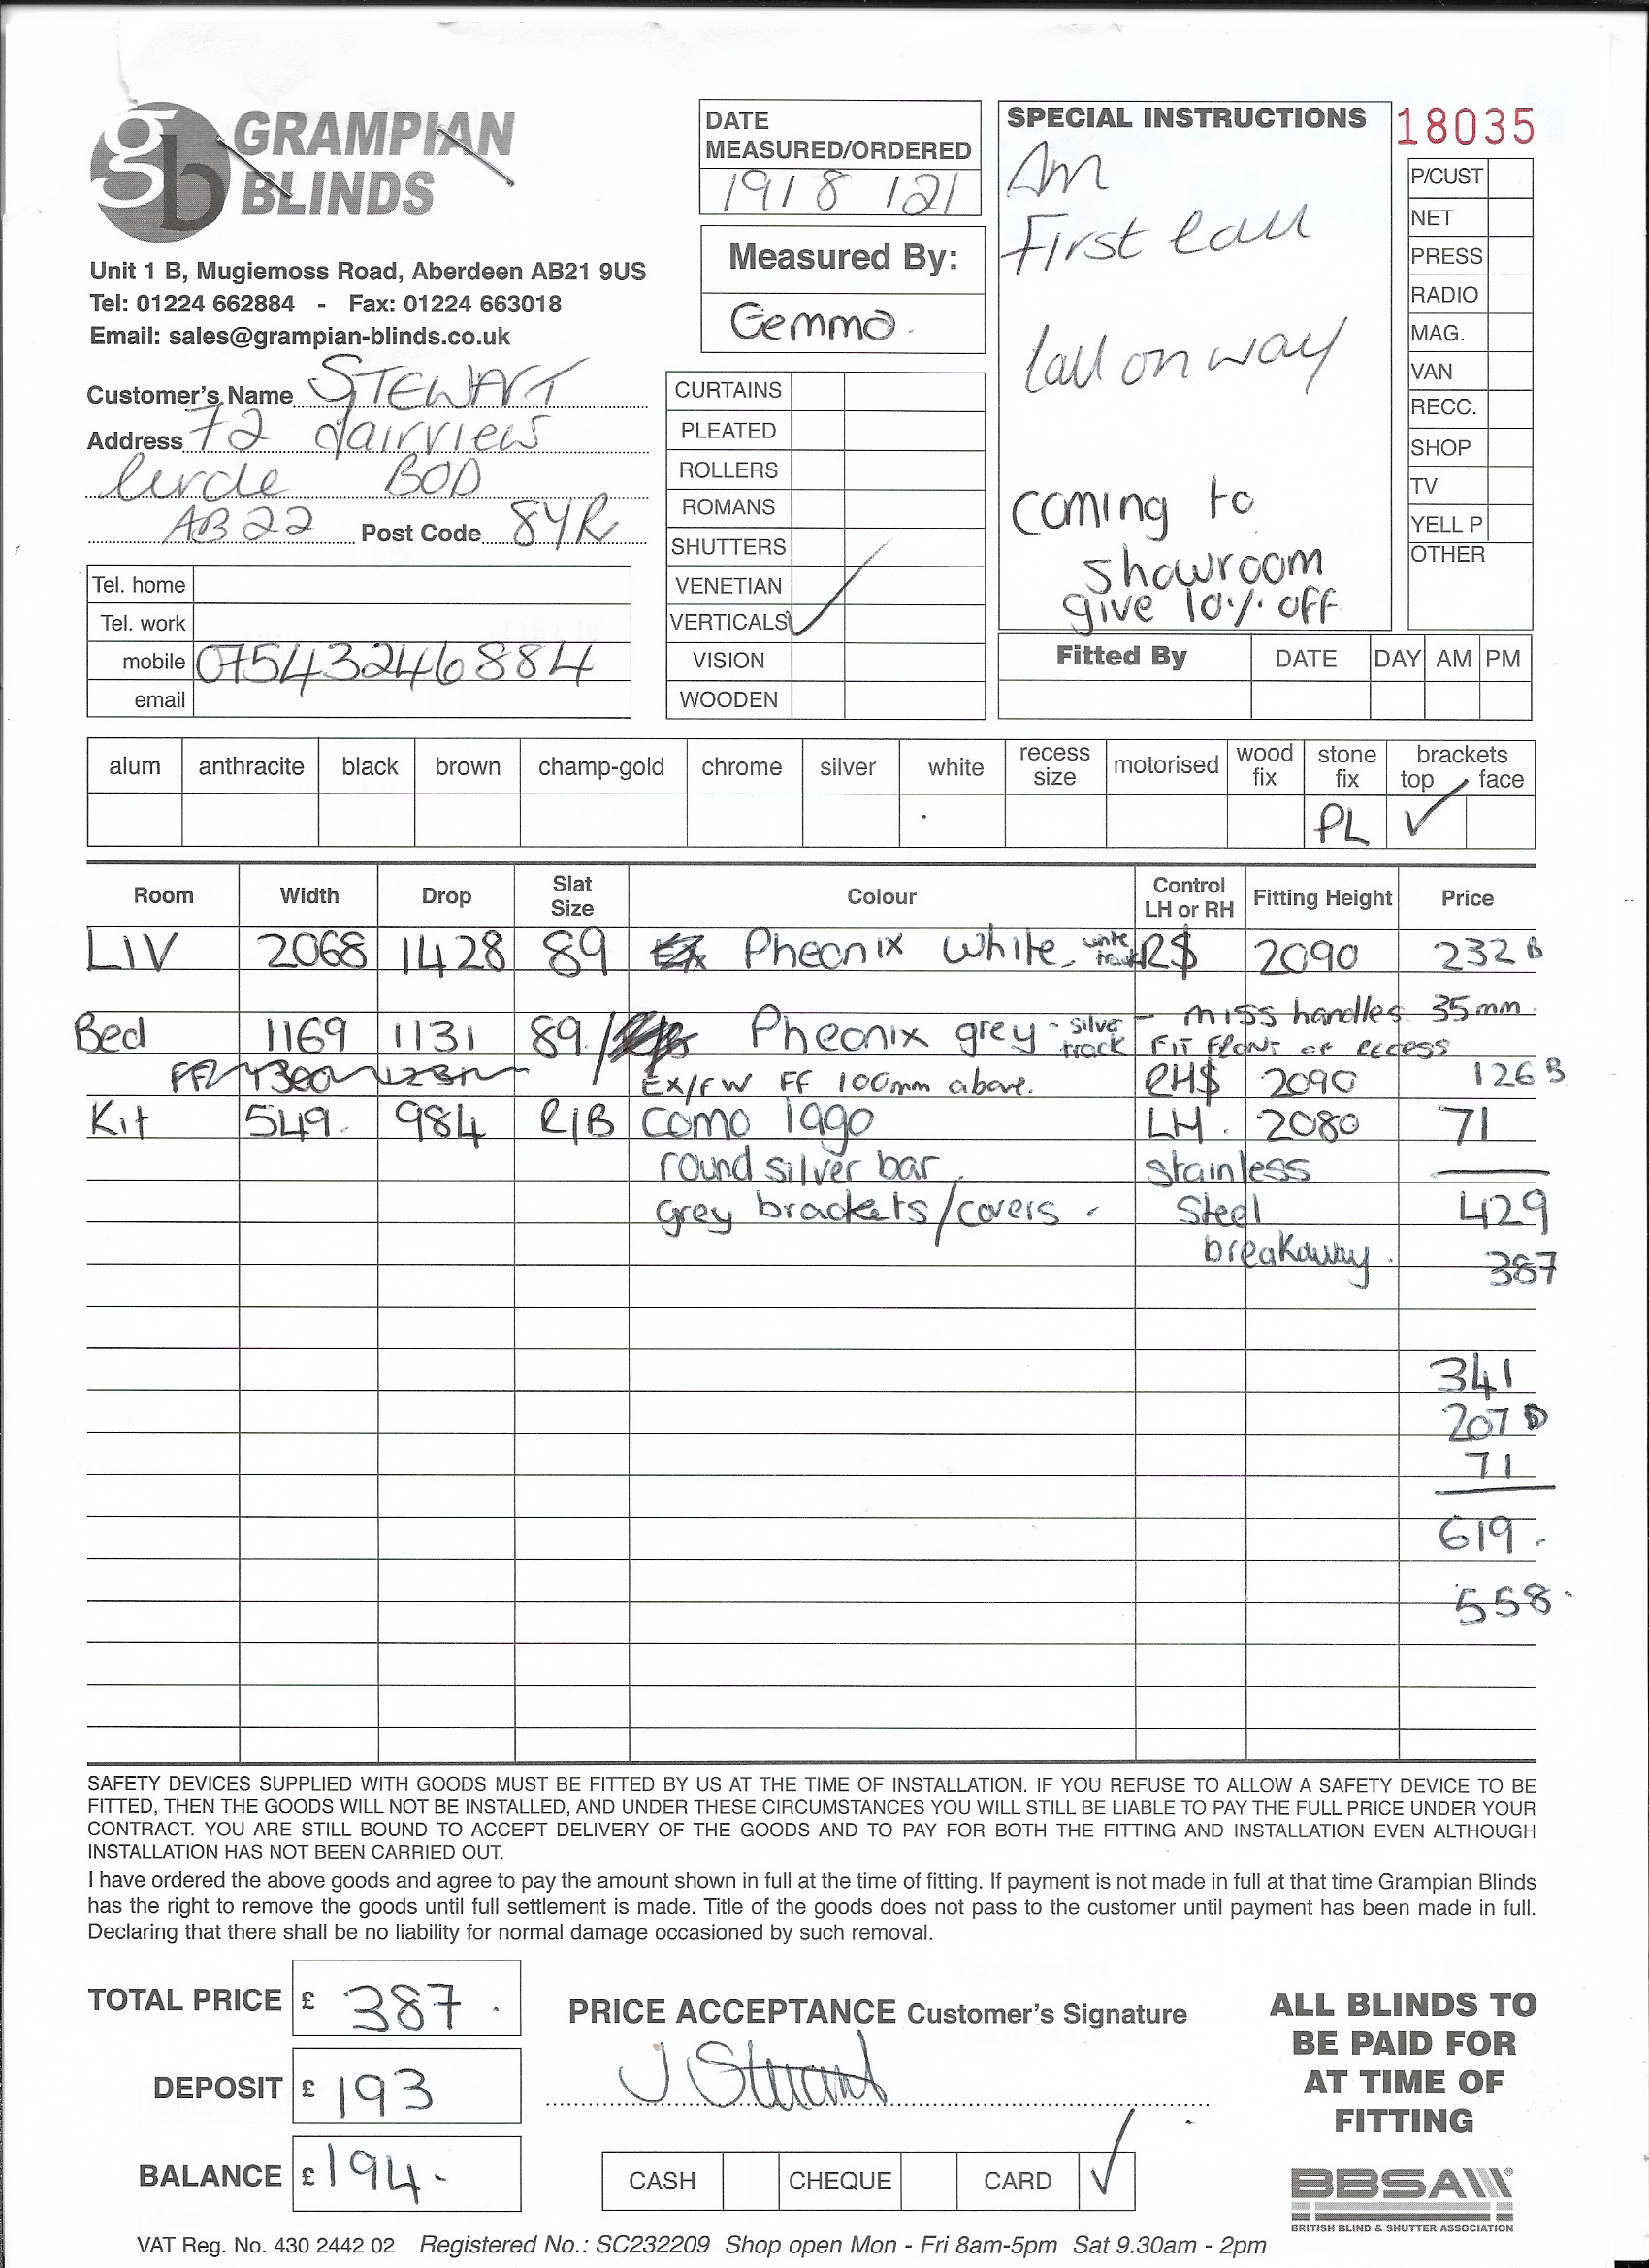 gb GRAMPIAN
BLINDS
Unit 1 B, Mugiemoss Road, Aberdeen AB21 9US
Tel: 01224 662884 - Fax: 01224 663018
Email: sales@grampian-blinds.co.uk
Customer's Name STEWART
Address 72 fairview
circle BOD
AB22 Post Code 8YR
Tel. home
Tel. work
mobile 07543246884
email
DATE
MEASURED/ORDERED
19/8/21
Measured By:
Gemma.
CURTAINS
PLEATED
ROLLERS
ROMANS
SHUTTERS
VENETIAN
VERTICALS ✓
VISION
WOODEN
SPECIAL INSTRUCTIONS
Am
First call
Call on way
coming to
showroom
give 10% off
18035
P/CUST
NET
PRESS
RADIO
MAG.
VAN
RECC.
SHOP
TV
YELL P
OTHER
Fitted By DATE DAY AM PM
alum anthracite black brown champ-gold chrome silver white recess size motorised wood fix stone fix brackets top face
PL ✓
Room Width Drop Slat Size Colour Control LH or RH Fitting Height Price
LIV 2068 1428 89 Pheonix white - white track R$ 2090 232 B
- miss handles 35mm.
Bed 1169 1131 89 Pheonix grey - silver track FIT FRONT OF RECESS
EX/FW FF 100mm above. RH$ 2090 126 B
Kit 549. 984 R/B como lago LH. 2080 71
round silver bar. stainless
grey brackets/covers - Steel 429
breakaway. 387
341
207 D
71
619.
558.
SAFETY DEVICES SUPPLIED WITH GOODS MUST BE FITTED BY US AT THE TIME OF INSTALLATION. IF YOU REFUSE TO ALLOW A SAFETY DEVICE TO BE
FITTED, THEN THE GOODS WILL NOT BE INSTALLED, AND UNDER THESE CIRCUMSTANCES YOU WILL STILL BE LIABLE TO PAY THE FULL PRICE UNDER YOUR
CONTRACT. YOU ARE STILL BOUND TO ACCEPT DELIVERY OF THE GOODS AND TO PAY FOR BOTH THE FITTING AND INSTALLATION EVEN ALTHOUGH
INSTALLATION HAS NOT BEEN CARRIED OUT.
I have ordered the above goods and agree to pay the amount shown in full at the time of fitting. If payment is not made in full at that time Grampian Blinds
has the right to remove the goods until full settlement is made. Title of the goods does not pass to the customer until payment has been made in full.
Declaring that there shall be no liability for normal damage occasioned by such removal.
TOTAL PRICE £ 387.
DEPOSIT £ 193
BALANCE £ 194.
PRICE ACCEPTANCE Customer's Signature
J Stewart
CASH CHEQUE CARD ✓
ALL BLINDS TO
BE PAID FOR
AT TIME OF
FITTING
BBSA
BRITISH BLIND & SHUTTER ASSOCIATION
VAT Reg. No. 430 2442 02 Registered No.: SC232209 Shop open Mon - Fri 8am-5pm Sat 9.30am - 2pm